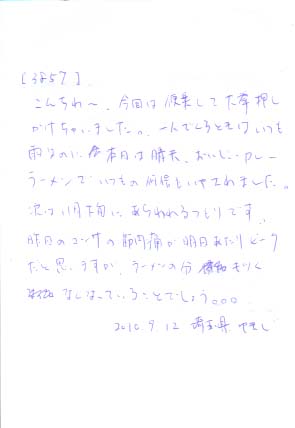 [3857]
こんちわ〜、今回は して大挙押し
かけちゃいました。 一人でくるときはいつも
雨なのに 本日は晴天、おいしいカレー
ラーメンで いつもの いやされました。
次は11月下旬に あらわれるつもりです。
昨日の の筋肉痛が 明日あたりピーク
だと思いますが、ラーメンの分
なくなっていることでしょう。。。
2010.9.12 埼玉県